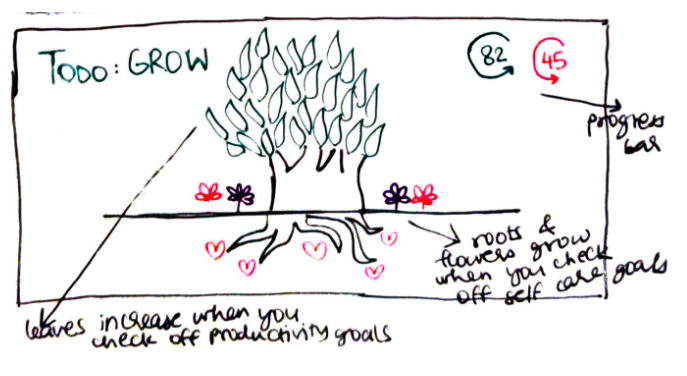 TODO: GROW
82
45
progress
bar
roots &
flowers grow
when you check
off self care goals
leaves increase when you
check off productivity goals